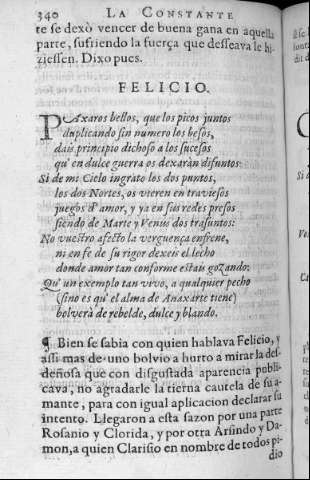 340 LA CONSTANTE
te se dexò vencer de buena gana en aquella
parte, sufriendo la fuerça que desseava le hi-
ziessen. Dixo pues.
FELICIO.
PAxaros bellos, que los picos juntos
duplicando sin numero los besos,
dais principio dichoso a los sucesos
qu' en dulce guerra os dexaràn difuntos:
Si de mi Cielo ingrato los dos puntos,
los dos Nortes, os vieren en traviesos
juegos d' amor, y ya en sus redes presos
siendo de Marte y Venus dos trasuntos:
No vuestro afecto la verguença enfrene,
ni en fe de su rigor dexeis el lecho
donde amor tan conforme estais gozando:
Qu' un exemplo tan vivo, a qualquier pecho
(sino es qu' el alma de Anaxarte tiene)
bolverà de rebelde, dulce y blando.
¶ Bien se sabia con quien hablava Felicio, y
assi mas de uno bolvio a hurto a mirar la des-
deñosa que con disgustada aparencia publi-
cava, no agradarle la tierna cautela de su a-
mante, para con igual aplicacion declarar su
intento. Llegaron a esta sazon por una parte
Rosanio y Clorida, y por otra Arsindo y Da-
mon, a quien Clarisio en nombre de todos pi-
dio